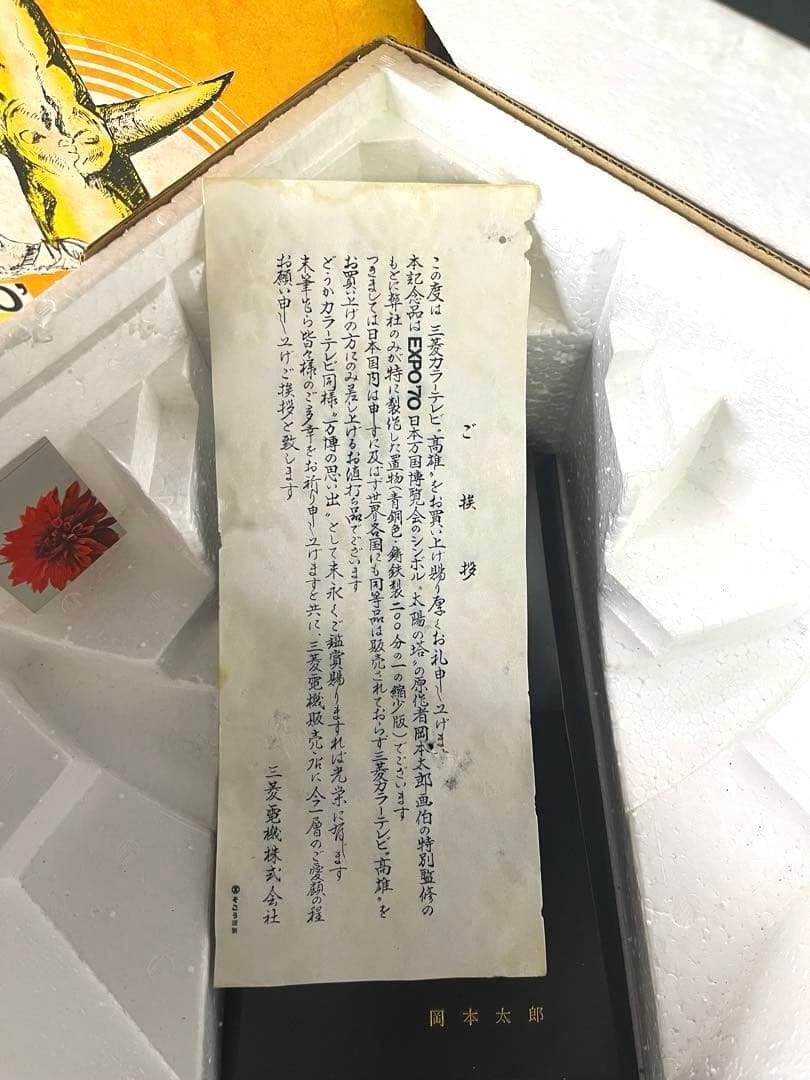 ご挨拶
この度は 三菱カラーテレビ〝高雄〟をお買い上げ賜り厚くお礼申し上げま
本記念品は EXPO'70 日本万国博覧会のシンボル〝太陽の塔〟の原作者岡本太郎画伯の特別監修の
もとに弊社のみが特に製作した置物(青銅色・鋳鉄製二〇〇分の一の縮少版)でございます
つきましては日本国内は申すに及ばず世界各国にも同等品は販売されておらず三菱カラーテレビ〝高雄〟を
お買い上げの方にのみ差し上げるお値打ち品でございます
どうかカラーテレビ同様〝万博の思い出〟として末永くご鑑賞賜りますれば光栄に存じます
末筆乍ら皆々様のご多幸をお祈り申し上げますと共に、三菱電機販売店に今一層のご愛顧の程
お願い申し上げご挨拶と致します
三菱電機株式会社
岡本太郎